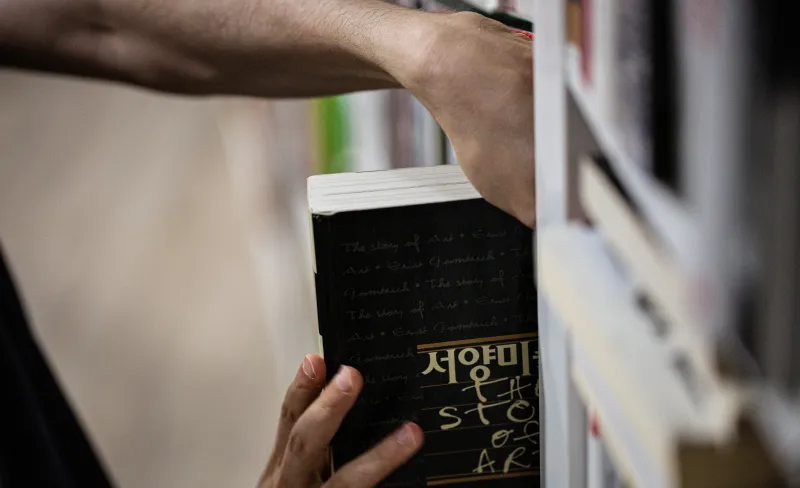 The story of Art • Ernst G
Art • Ernst Gombrich • T
Gombrich • The story of
The story of Art • Ernst
Art • Ernst Gombrich
Gombrich • The
The story of
서양미
THE
STO
OF
AR